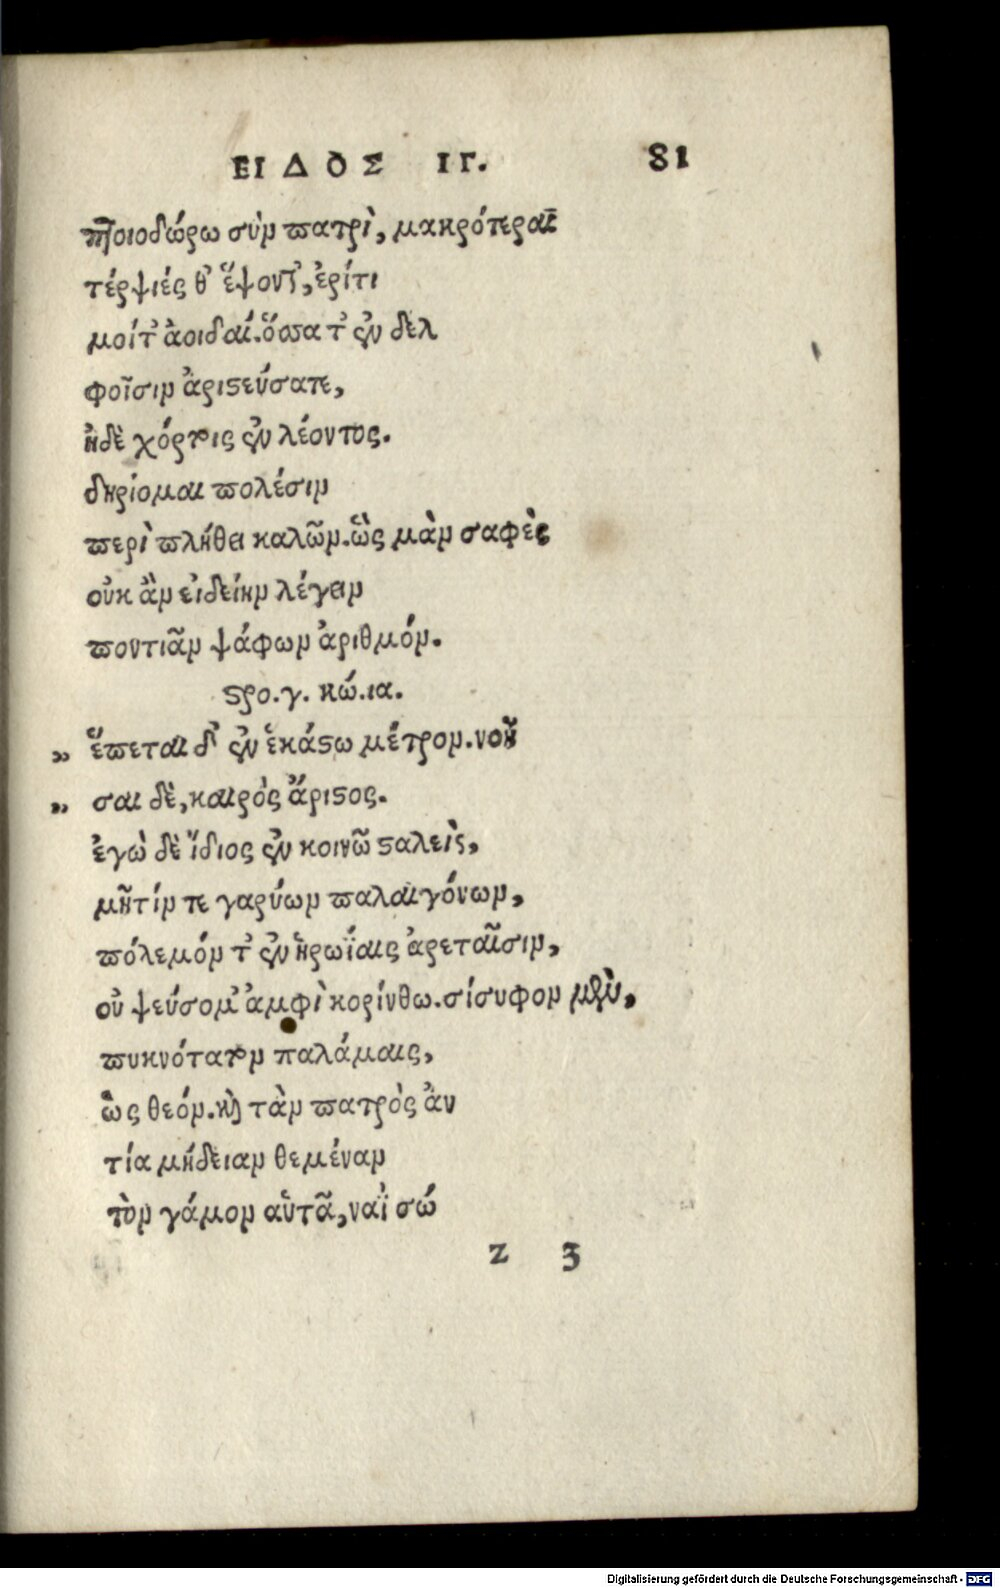 ΕΙΔΟΣ ΙΓ. 81
πτοιοδώρω σὺν πατρὶ, μακρότεραι
τέρψιές θ' ἕψοντ', ἐρίτι
μοίτ' ἀοιδαί. ὅσσα τ' ἐν δελ
φοῖσιν ἀριστεύσατε,
ἠδὲ χόρτοις ἐν λέοντος.
δηρίομαι πολέσιν
περὶ πλήθει καλῶν. ὣς μὰν σαφὲς
οὐκ ἂν εἰδείην λέγειν
ποντιᾶν ψάφων ἀριθμόν.
στρο. γ. κώ. ια.
„ ἕπεται δ' ἐν ἑκάστω μέτρον. νοῆ
„ σαι δὲ, καιρὸς ἄριστος.
ἐγὼ δὲ ἴδιος ἐν κοινῶ σταλεὶς,
μῆτίν τε γαρύων παλαιγόνων,
πόλεμόν τ' ἐν ἡρωΐαις ἀρεταῖσιν,
οὐ ψεύσομ' ἀμφὶ κορίνθω. σίσυφον μὲν,
πυκνότατον παλάμαις,
ὡς θεόν. καὶ τὰν πατρὸς ἀν
τία μήδειαν θεμέναν
τὸν γάμον αὑτᾶ, ναῒ σώ
z 3
Digitalisierung gefördert durch die Deutsche Forschungsgemeinschaft - DFG